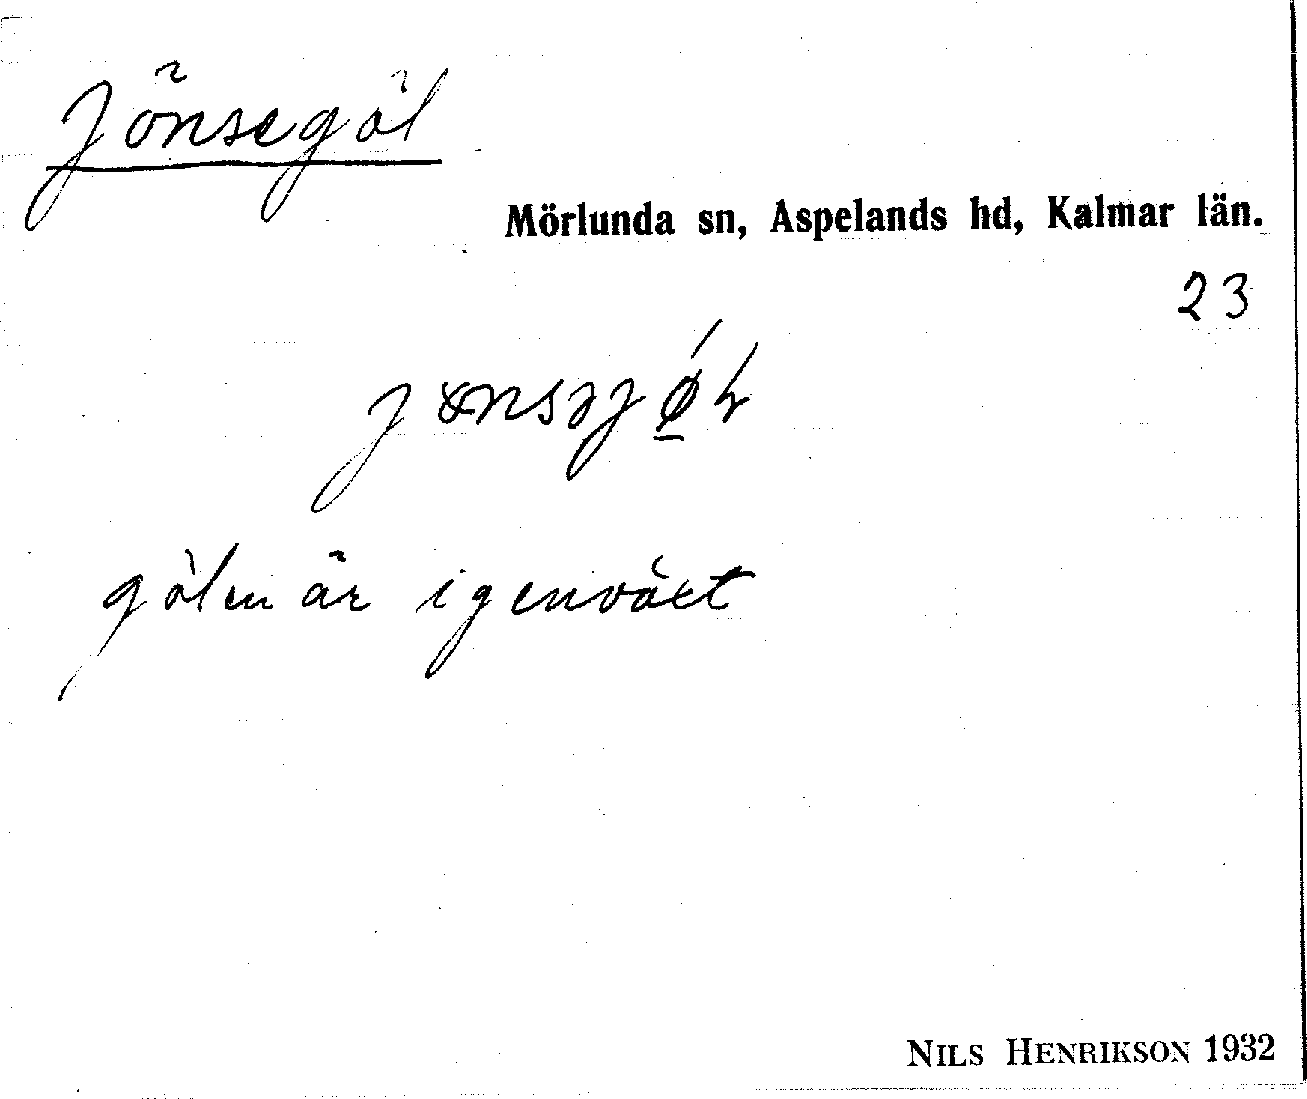 Jönsegöl
Mörlunda sn, Aspelands hd, Kalmar län.
23
gölen är igenväxt
NILS HENRIKSON 1932